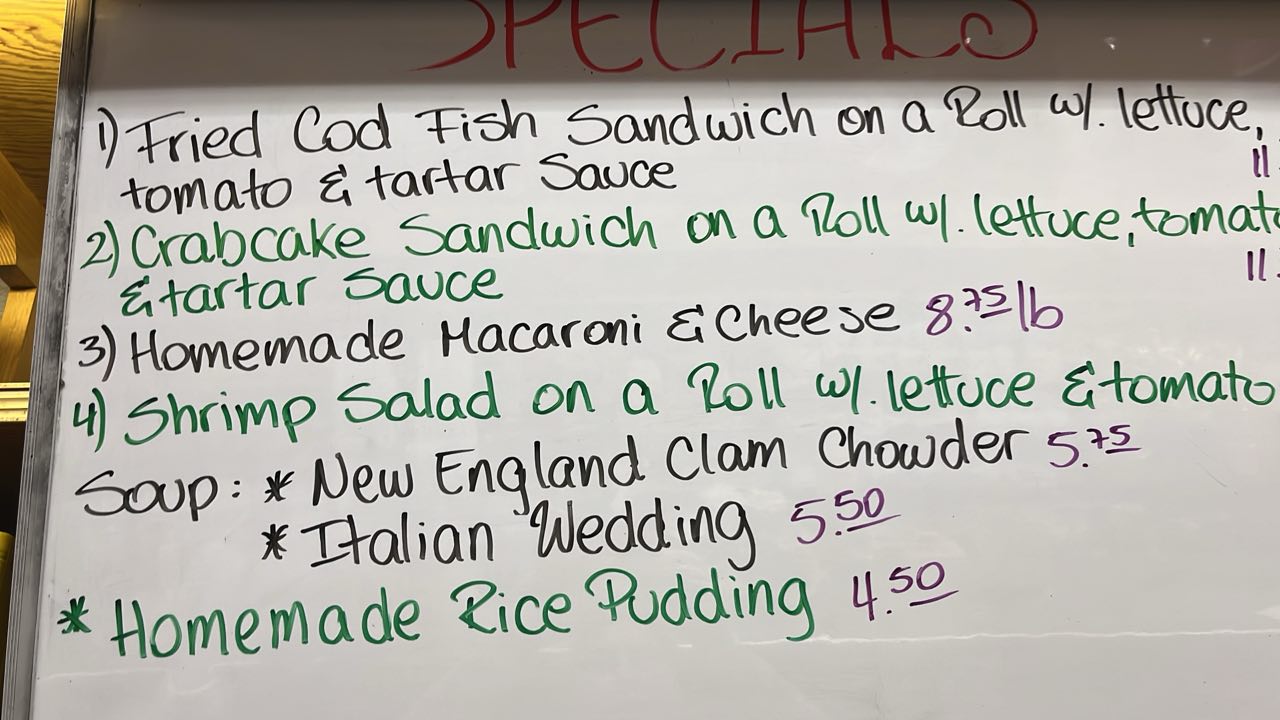 SPECIALS
1) Fried Cod Fish Sandwich on a Roll w/. lettuce,
tomato & tartar Sauce 11.
2) Crabcake Sandwich on a Roll w/. lettuce, tomato
& tartar Sauce 11.
3) Homemade Macaroni & Cheese 8.75 lb
4) Shrimp Salad on a Roll w/. lettuce & tomato
Soup: * New England Clam Chowder 5.75
* Italian Wedding 5.50
* Homemade Rice Pudding 4.50